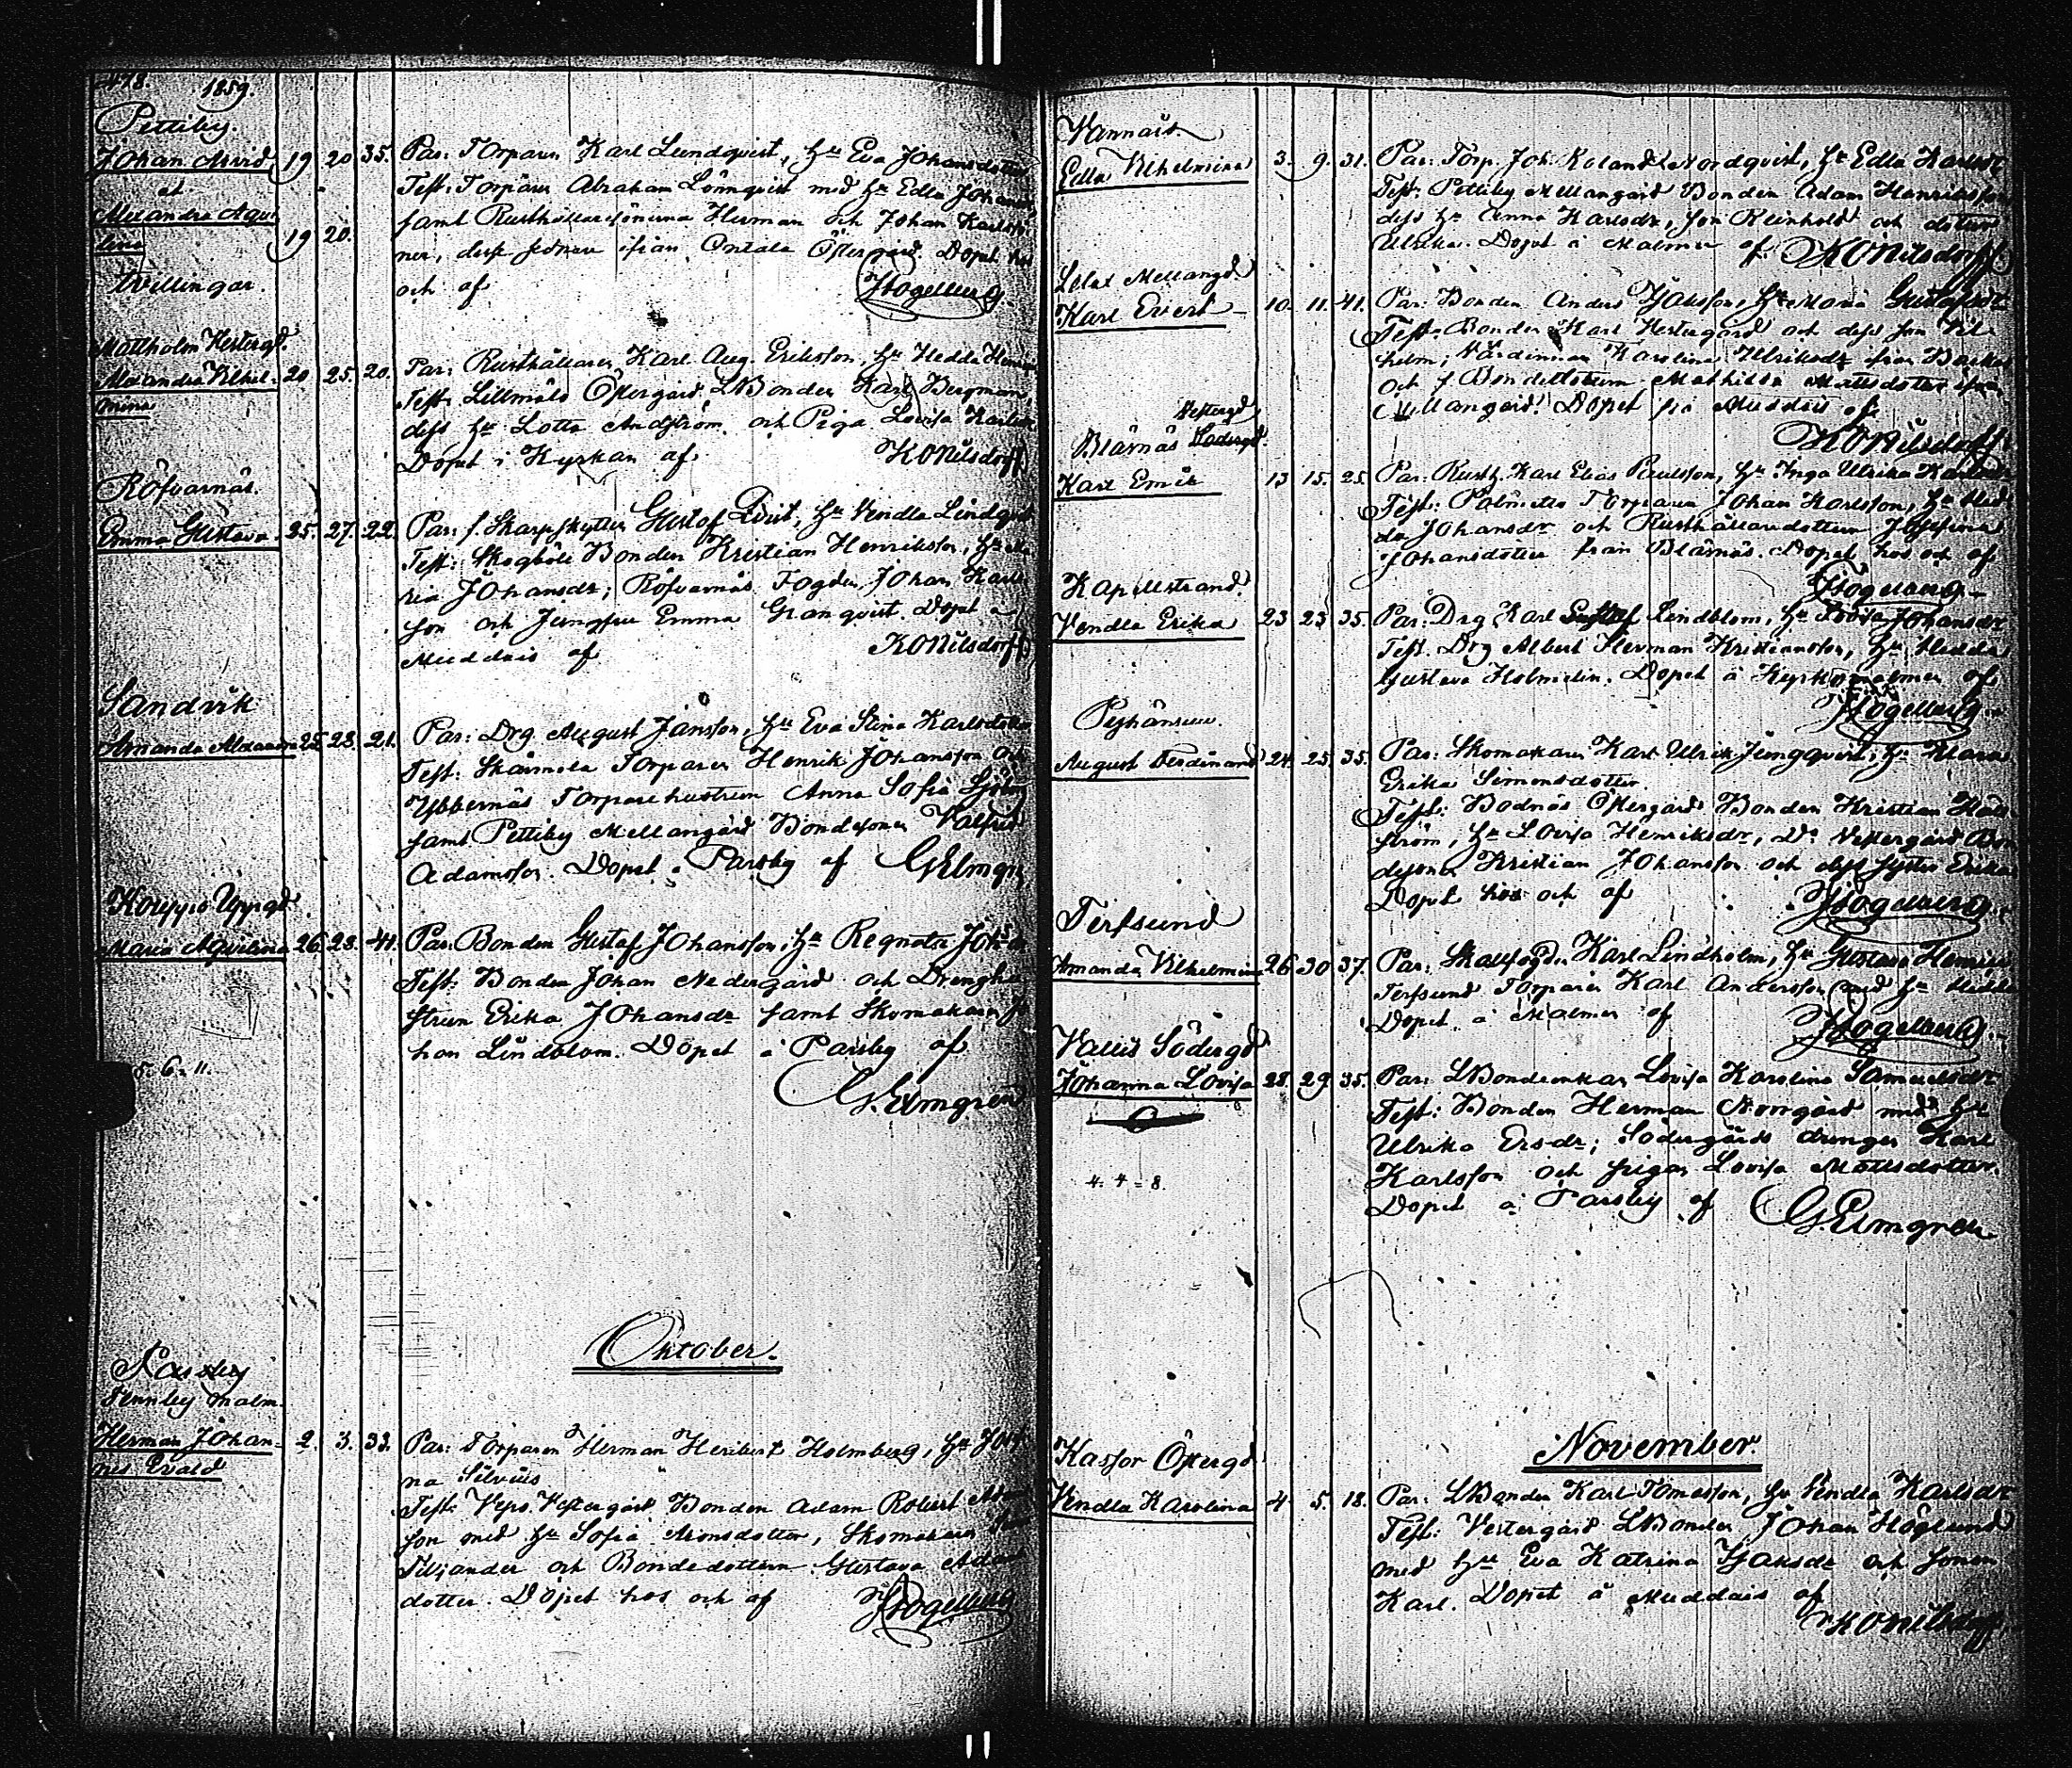 478. 1859.
Pettiby.
Johan Arvid 19 20 35. Par: Torparen Karl Lundqvist, hu Eva Johansdotter
et Test: Torparen Abraham Lönnqvist med hu Edla Johans
Alexandra Aqvi samt Rusthållaresönerna Herman och Johan Karlsso
lina 19 20. ner, desse sednare ifrån Ontala Östergård. Döpt hos
Tvillingar. och af Hogelberg.
Mattholm Vestergd.
Alexandra Vilhel- 20 25. 20. Par: Rusthållaren Karl Aug. Eriksson, hu Hedda
mina Test: Lillmälö Östergård LBonden Karl Bergman,
dess hu Lotta Andström och Piga Lovisa Karlsdr
Döpt i Kyrkan af KONilsdorff
Röfvarnäs.
Emma Gustava 25. 27. 22. Par: f. Skarpskytten Gustaf Qvist, hu Vendla Lindqvist
Test: Skogböle Bonden Kristian Henriksson, hu Ma
ria Johansdr; Röfvarnäs Fogden Johan Karls
son och Jungfru Emma Granqvist. Döpt å
Muddais af KONilsdorff
Sandvik
Amanda Alexandra 25 28. 21. Par: Drg August Jansson, hu Eva Stina Karlsdotter
Test: Skärmola Torparen Henrik Johansson och
Ybbernäs Torparehustrun Anna Sofia Sjöberg
samt Pettiby Mellangård Bondesonen Valfrid
Adamsson. Döpt å Parsby af GElmgren
Kouppo Uppgd
Maria Aqvilina 26. 28. 41. Par: Bonden Gustaf Johansson, hu Regnata Johs
Test: Bonden Johan Nedergård och Drenghu
strun Erika Johansdr samt Skomakaren Jo
han Lindblom. Döpt å Parsby af
5. 6. 11.
G.Elmgren
Oktober.
Parsby
Sunnby malm.
Herman Johan- 2. 3. 33. Par: Torparen Herman Heribert Holmberg, hu
nes Evald na Silvius
Test: Vepo Vestergård Bonden Adam Robert
son med hu Sofia Aronsdotter, Skomakaren
Siljander och Bondedottern Gustava Adams
dotter. Döpt hos och af Hogelberg
Vannais
Edla Vilhelmina 3. 9. 31. Par: Torp. Joh. Roland Nordqvist, hu Edla Karlsdr
Test: Pettiby Mellangård Bonden Adam Henriksson
dess hu Anna Karlsdr, son Reinhold och dotter
Ulrika. Döpt å Malmen af KONilsdorff
Lelax Mellangd
Karl Evert 10. 11. 41. Par: Bonden Anders Isaksson, hu Maria Gustafsdr
Test: Bonden Karl Vestergård och dess son Vil-
helm; Värdinnan Karolina Ulriksdr ifrån Backas
och f. Bondedottern Mathilda Mattsdotter ifrån
Mellangård. Döpt på Muddais af
KONilsdorff
Vestergd
Blåsnäs Södergd.
Karl Emil 13 15. 25. Par: Rusth. Karl Elias Paulsson, hu Inga Ulrika Karlsdr
Test: Torparen Johan Karlsson, hu Hed
da Johansdr och Rusthållaredottern Josefina
Johansdotter från Blåsnäs. Döpt hos och af
Hogelberg
Kapellstrand.
Vendla Erika 23 23 35. Par: Drg Karl Gustaf Lindblom, hu Lovisa Johansdr
Test. Drg Albert Herman Kristiansson, hu Hedda
Gustava Holmelin. Döpt å Kyrkomalmen af
Hogelberg
August Ferdinand 24. 25. 35. Par: Skomakaren Karl Ulrik Jungqvist, hu Klara
Erika Simonsdotter.
Test: Bodnäs Östergård Bonden Kristian Hag
ström, hu Lovisa Henriksdr, Do Vestergård Bon
desonen Kristian Johansson och dess syster Erika
Döpt hos och af Hogelberg
Terfsund
Amanda Vilhelmina 26 30 37. Par: Skallfogden Karl Lindholm, hu Gustava Henriks
Terfsund Torparen Karl Andersson med hu Hedda
Döpt å Malmen af Hogelberg.
Vallis Södergd
Johanna Lovisa 28. 29. 35. Par: LBondeenkan Lovisa Karolina Samuelsdr
Test: Bonden Herman Norrgård med hu
Ulrika Ersdr; Södergårds drengen Karl
4. 4 = 8. Karlsson och pigan Lovisa Mattsdotter
Döpt å Parsby af G.Elmgren
November.
Kassor Östergd
Vendla Karolina 4. 5. 18. Par: LBonden Karl Tomasson, hu Vendla Karlsdr
Test: Vestergård LBonden Johan Höglund
med hu Eva Katrina Isaksdr och sonen
Karl. Döpt å Muddais af
KONilsdorff